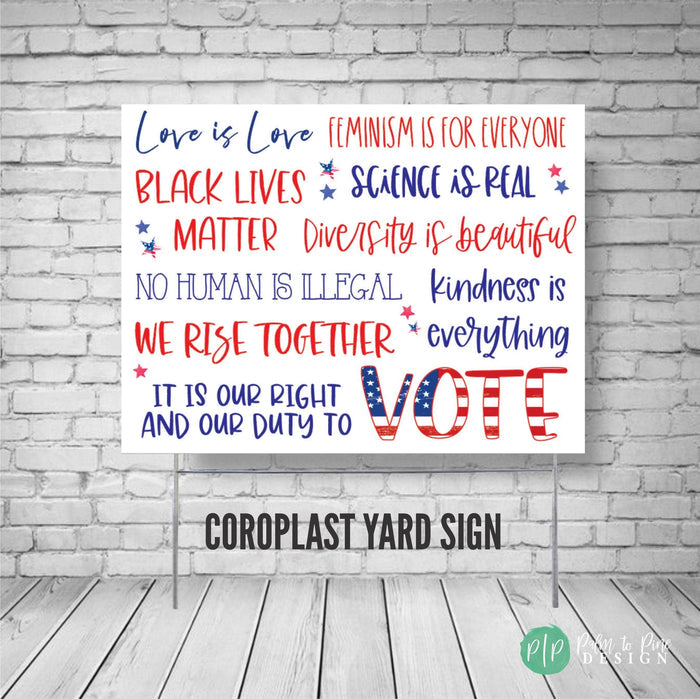 Love is Love FEMINISM IS FOR EVERYONE
BLACK LIVES
MATTER
SCIENCE iS REAL
Diversity is beautiful
NO HUMAN IS ILLEGAL
kindness is
everything
WE RISE TOGETHER
IT IS OUR RIGHT
AND OUR DUTY TO
VOTE
COROPLAST YARD SIGN
P|P Palm to Pine
DESIGN